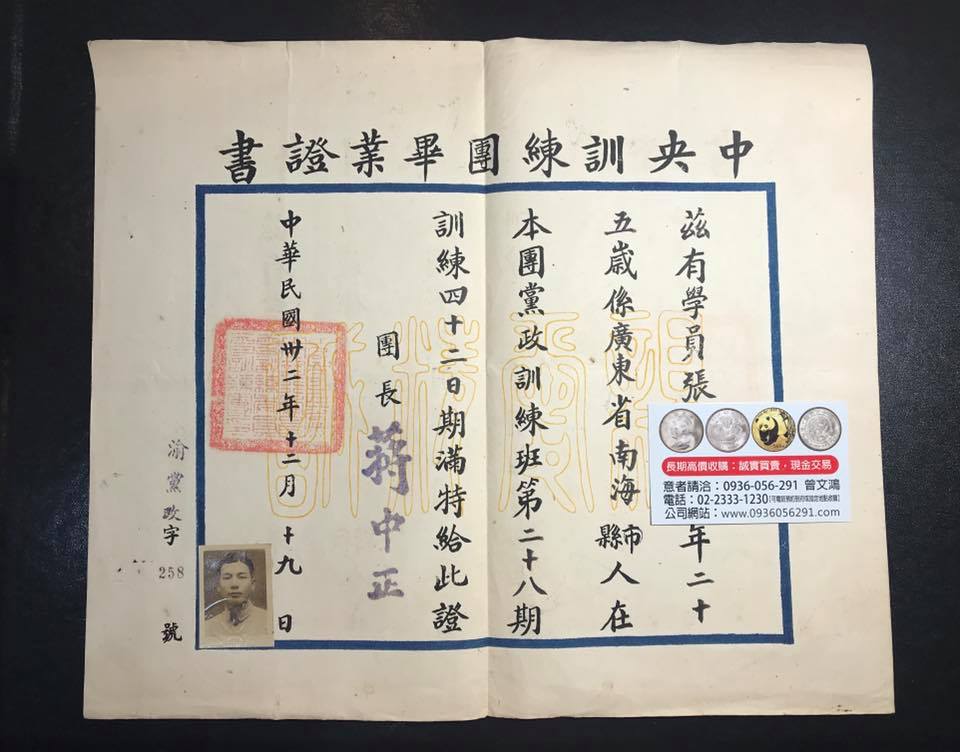 中央訓練團畢業證書
茲有學員張
年二十
五歲係廣東省南海市縣人在
本團黨政訓練班第二十八期
訓練四十二日期滿特給此證
團長 蔣中正
中華民國卅二年十二月十九日
渝黨政字 258 號
長期高價收購:誠實買賣,現金交易
意者請洽:0936-056-291 曾文鴻
電話:02-2333-1230
公司網站:www.0936056291.com